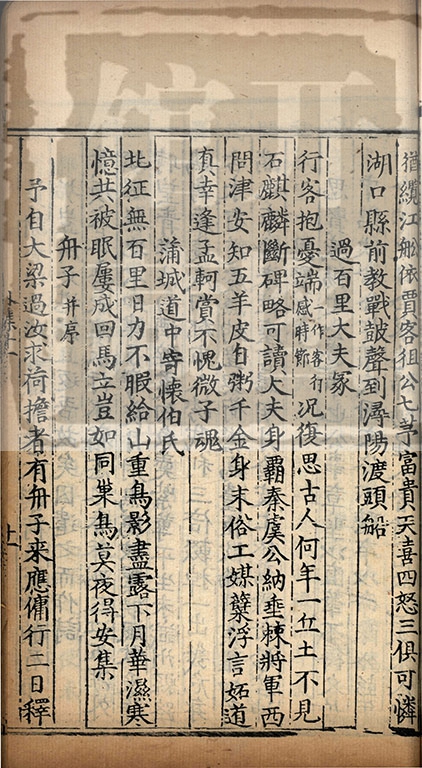 猶纜江船依賈客狙公七芧富貴天喜四怒三俱可憐
湖口縣前教戰鼓聲到潯陽渡頭船
過百里大夫冢
行客抱憂端感時節作客行况復思古人何年一丘土不見
石麒麟斷碑略可讀大夫身霸秦虞公納垂棘將軍西
問津安知五羊皮自粥千金身末俗工媒糵浮言妬道
真幸逢孟軻賞不愧微子魂
蒲城道中寄懷伯氏
北征無百里日力不暇給山重鳥影盡露下月華濕寒
憶共被眠屢成回馬立豈如同巢鳥莫夜得安集
舟子并序
予自大梁過汝求荷擔者有舟子来應傭行二日釋